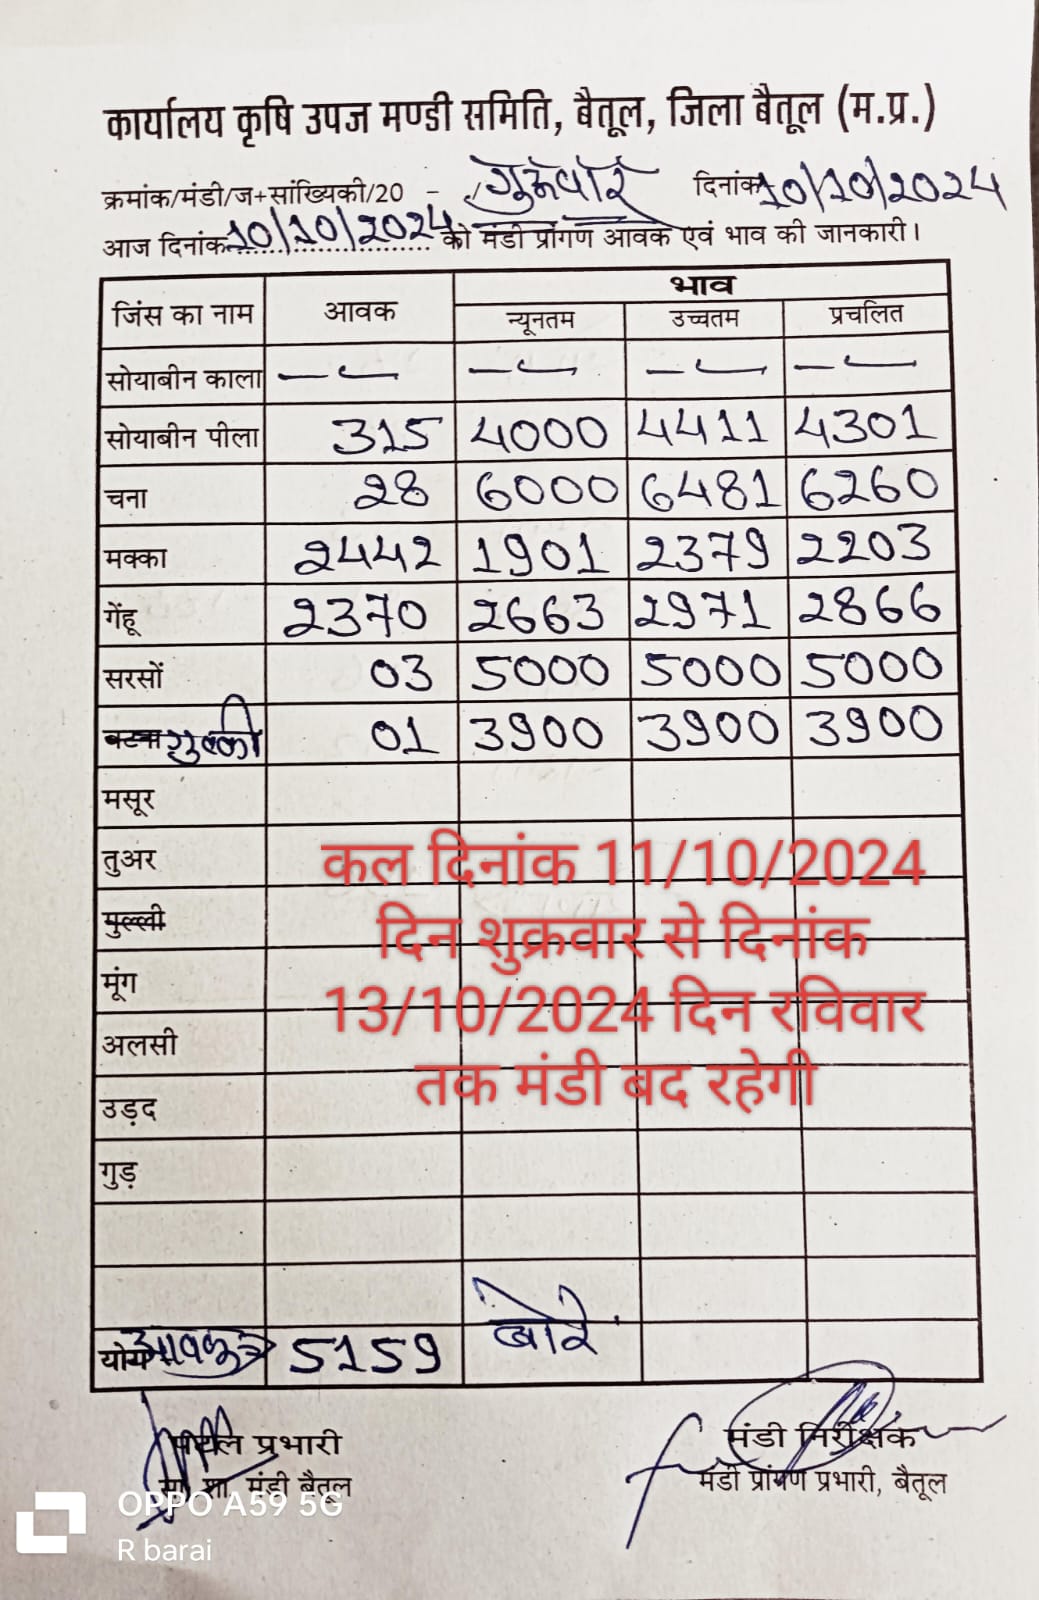 कार्यालय कृषि उपज मण्डी समिति, बैतूल, जिला बैतूल (म.प्र.)
क्रमांक/मंडी/ज+सांख्यिकी/20 - / गुरूवार दिनांक 10/10/2024
आज दिनांक 10/10/2024 को मंडी प्रांगण आवक एवं भाव की जानकारी।
जिंस का नाम आवक भाव
न्यूनतम उच्चतम प्रचलित
सोयाबीन काला — — — —
सोयाबीन पीला 315 4000 4411 4301
चना 28 6000 6481 6260
मक्का 2442 1901 2379 2203
गेंहू 2370 2663 2971 2866
सरसों 03 5000 5000 5000
01 3900 3900 3900
मसूर
तुअर
कल दिनांक 11/10/2024
दिन शुक्रवार से दिनांक
13/10/2024 दिन रविवार
तक मंडी बद रहेगी
मुल्ली
मूंग
अलसी
उड़द
गुड़
योग आवक 5159 बोरे
प्रभारी मंडी निरीक्षक
मंडी बैतूल मंडी प्रांगण प्रभारी, बैतूल
OPPO A59 5G
R barai